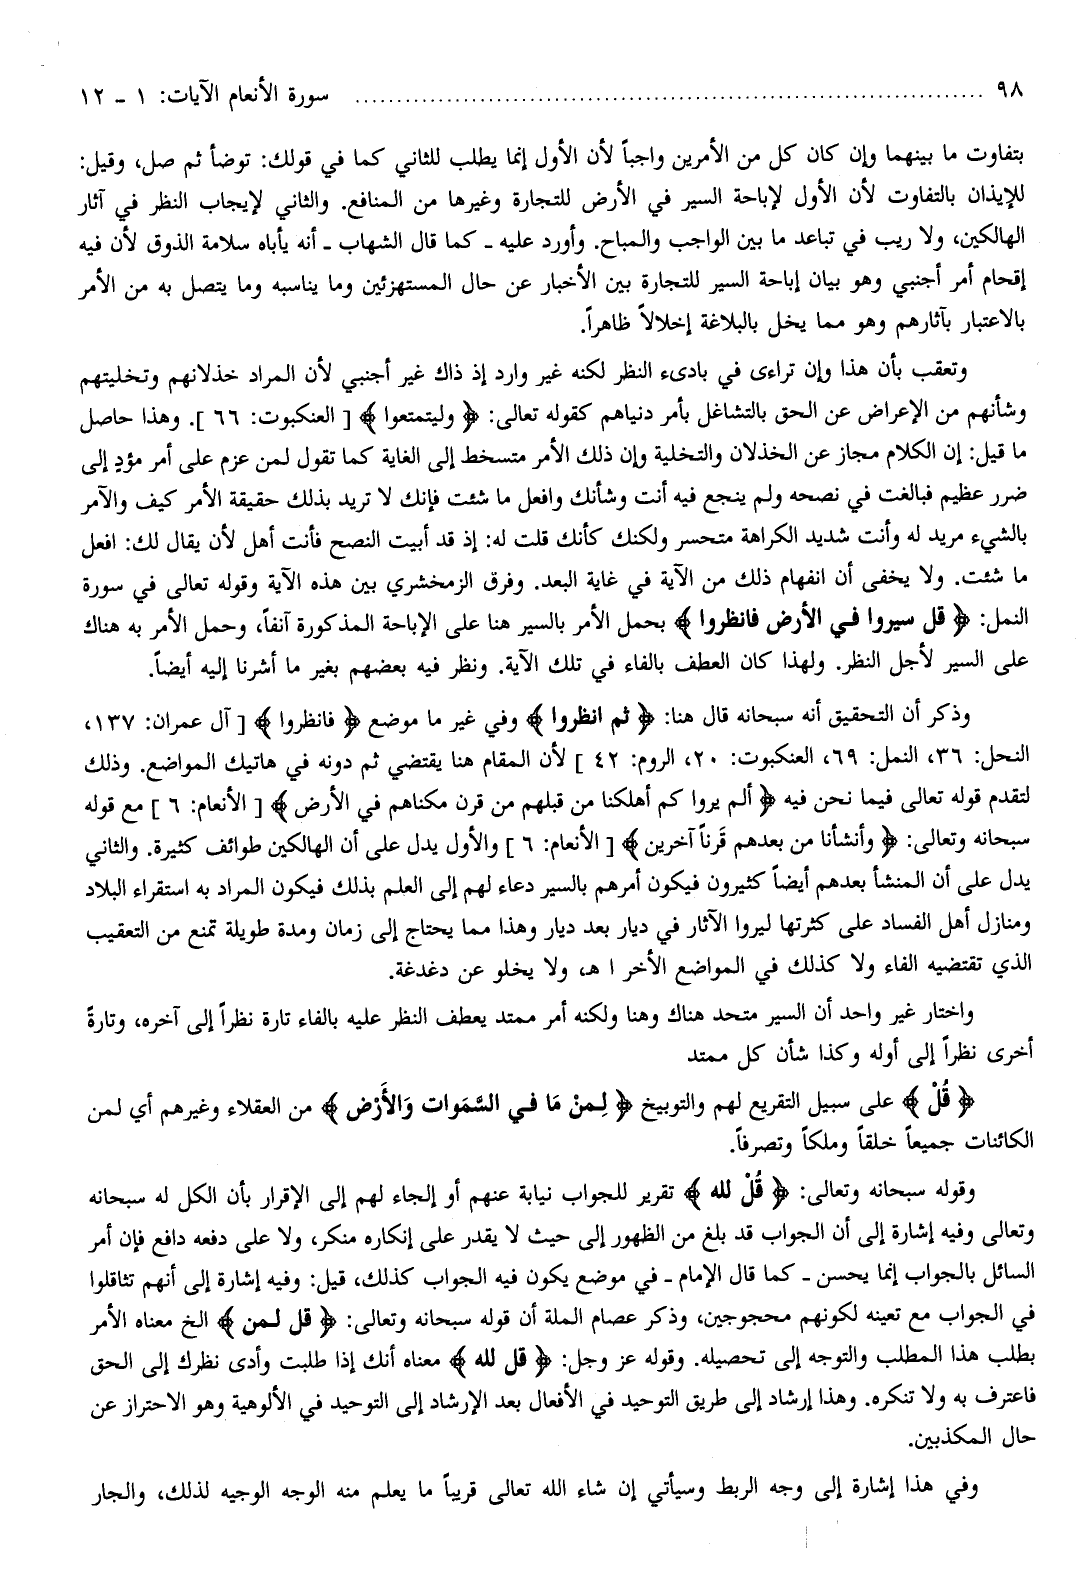 ٩٨ ........................................ سورة الأنعام الآيات: ١ ـ ١٢
بتفاوت ما بينهما وإن كان كل من الأمرين واجباً لأن الأول إنما يطلب للثاني كما في قولك: توضأ ثم صل، وقيل:
للإيذان بالتفاوت لأن الأول لإباحة السير في الأرض للتجارة وغيرها من المنافع. والثاني لإيجاب النظر في آثار
الهالكين، ولا ريب في تباعد ما بين الواجب والمباح. وأورد عليه ـ كما قال الشهاب ـ أنه يأباه سلامة الذوق لأن فيه
إقحام أمر أجنبي وهو بيان إباحة السير للتجارة بين الأخبار عن حال المستهزئين وما يناسبه وما يتصل به من الأمر
بالاعتبار بآثارهم وهو مما يخل بالبلاغة إخلالاً ظاهراً.
وتعقب بأن هذا وإن تراءى في بادىء النظر لكنه غير وارد إذ ذاك غير أجنبي لأن المراد خذلانهم وتخليتهم
وشأنهم من الإعراض عن الحق بالتشاغل بأمر دنياهم كقوله تعالى: ﴿ وليتمتعوا ﴾ [ العنكبوت: ٦٦ ]. وهذا حاصل
ما قيل: إن الكلام مجاز عن الخذلان والتخلية وإن ذلك الأمر متسخط إلى الغاية كما تقول لمن عزم على أمر مؤدٍ إلى
ضرر عظيم فبالغت في نصحه ولم ينجع فيه أنت وشأنك وافعل ما شئت فإنك لا تريد بذلك حقيقة الأمر كيف والآمر
بالشيء مريد له وأنت شديد الكراهة متحسر ولكنك كأنك قلت له: إذ قد أبيت النصح فأنت أهل لأن يقال لك: افعل
ما شئت. ولا يخفى أن انفهام ذلك من الآية في غاية البعد. وفرق الزمخشري بين هذه الآية وقوله تعالى في سورة
النمل: ﴿ قل سيروا في الأرض فانظروا ﴾ بحمل الأمر بالسير هنا على الإباحة المذكورة آنفاً، وحمل الأمر به هناك
على السير لأجل النظر. ولهذا كان العطف بالفاء في تلك الآية. ونظر فيه بعضهم بغير ما أشرنا إليه أيضاً.
وذكر أن التحقيق أنه سبحانه قال هنا: ﴿ ثم انظروا ﴾ وفي غير ما موضع ﴿ فانظروا ﴾ [ آل عمران: ١٣٧،
النحل: ٣٦، النمل: ٦٩، العنكبوت: ٢٠، الروم: ٤٢ ] لأن المقام هنا يقتضي ثم دونه في هاتيك المواضع. وذلك
لتقدم قوله تعالى فيما نحن فيه ﴿ ألم يروا كم أهلكنا من قبلهم من قرن مكناهم في الأرض ﴾ [ الأنعام: ٦ ] مع قوله
سبحانه وتعالى: ﴿ وأنشأنا من بعدهم قَرناً آخرين ﴾ [ الأنعام: ٦ ] والأول يدل على أن الهالكين طوائف كثيرة. والثاني
يدل على أن المنشأ بعدهم أيضاً كثيرون فيكون أمرهم بالسير دعاء لهم إلى العلم بذلك فيكون المراد به استقراء البلاد
ومنازل أهل الفساد على كثرتها ليروا الآثار في ديار بعد ديار وهذا مما يحتاج إلى زمان ومدة طويلة تمنع من التعقيب
الذي تقتضيه الفاء ولا كذلك في المواضع الأخر ا هـ، ولا يخلو عن دغدغة.
واختار غير واحد أن السير متحد هناك وهنا ولكنه أمر ممتد يعطف النظر عليه بالفاء تارة نظراً إلى آخره، وتارةً
أخرى نظراً إلى أوله وكذا شأن كل ممتد
﴿ قُلْ ﴾ على سبيل التقريع لهم والتوبيخ ﴿ لِمنْ مَا في السَّمَوات وَالأَرْض ﴾ من العقلاء وغيرهم أي لمن
الكائنات جميعاً خلقاً وملكاً وتصرفاً.
وقوله سبحانه وتعالى: ﴿ قُلْ لله ﴾ تقرير للجواب نيابة عنهم أو إلجاء لهم إلى الإقرار بأن الكل له سبحانه
وتعالى وفيه إشارة إلى أن الجواب قد بلغ من الظهور إلى حيث لا يقدر على إنكاره منكر، ولا على دفعه دافع فإن أمر
السائل بالجواب إنما يحسن ـ كما قال الإمام ـ في موضع يكون فيه الجواب كذلك، قيل: وفيه إشارة إلى أنهم تثاقلوا
في الجواب مع تعينه لكونهم محجوجين، وذكر عصام الملة أن قوله سبحانه وتعالى: ﴿ قل لمن ﴾ الخ معناه الأمر
بطلب هذا المطلب والتوجه إلى تحصيله. وقوله عز وجل: ﴿ قل لله ﴾ معناه أنك إذا طلبت وأدى نظرك إلى الحق
فاعترف به ولا تنكره. وهذا إرشاد إلى طريق التوحيد في الأفعال بعد الإرشاد إلى التوحيد في الألوهية وهو الاحتراز عن
حال المكذبين.
وفي هذا إشارة إلى وجه الربط وسيأتي إن شاء الله تعالى قريباً ما يعلم منه الوجه الوجيه لذلك، والجار